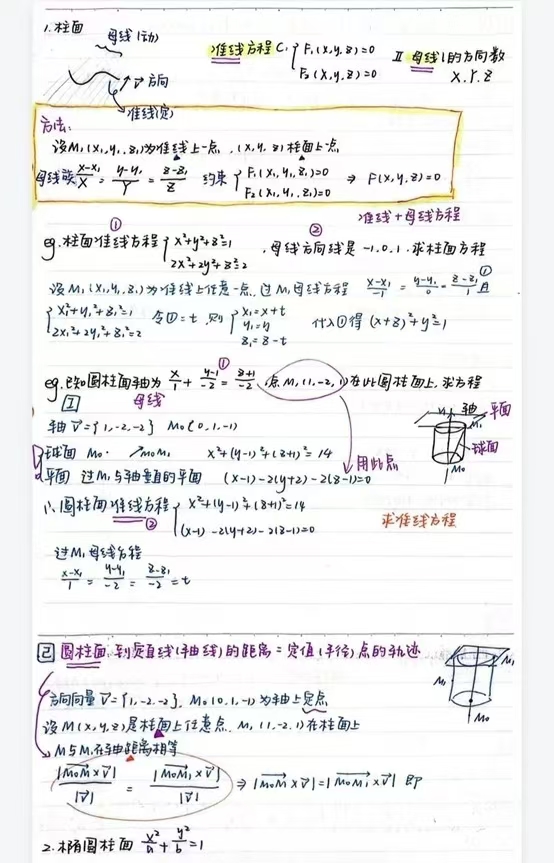 1.柱面
母线(动)
v 方向
准线(定)
准线方程 C: { F₁(x,y,z)=0
F₂(x,y,z)=0
Ⅱ 母线l的方向数
X.Y.Z
方法:
设M₁(x₁,y₁,z₁)为准线上一点,(x,y,z)柱面上一点
母线族 (x-x₁)/X = (y-y₁)/Y = (z-z₁)/Z 约束 { F₁(x₁,y₁,z₁)=0
F₂(x₁,y₁,z₁)=0 ⇒ F(x,y,z)=0
准线+母线方程
① ②
eg.柱面准线方程 { x²+y²+z²=1
2x²+2y²+z²=2 ,母线方向线是-1.0.1.求柱面方程
设M₁(x₁,y₁,z₁)为准线上任意一点.过M₁母线方程 (x-x₁)/-1 = (y-y₁)/0 = (z-z₁)/1 ① 且
{ x₁²+y₁²+z₁²=1
2x₁²+2y₁²+z₁²=2 令①=t,则 { x₁=x+t
y₁=y
z₁=z-t 代入①得 (x+z)²+y²=1
①
eg.已知圆柱面轴为 x/1 = (y-1)/-2 = (z+1)/-2 ,点M₁(1,-2,1)在此圆柱面上,求方程
母线
1
轴 v={1,-2,-2} M₀(0,1,-1)
球面 M₀. M₀M₁ x²+(y-1)²+(z+1)²=14
平面 过M₁与轴垂直的平面 (x-1)-2(y+2)-2(z-1)=0
用此点
轴 平面
M₁
球面
M₀
圆柱面准线方程 { x²+(y-1)²+(z+1)²=14
② (x-1)-2(y+2)-2(z-1)=0
求准线方程
过M₁母线方程
(x-x₁)/1 = (y-y₁)/-2 = (z-z₁)/-2 = t
2 圆柱面,到定直线(轴线)的距离=定值(半径)点的轨迹
方向向量 v={1,-2,-2}, M₀(0,1,-1)为轴上定点
设M(x,y,z)是柱面上任意点, M₁(1,-2,1)在柱面上
M与M₁在轴距离相等
|M₀M×v|/|v| = |M₀M₁×v|/|v| ⇒ |M₀M×v|=|M₀M₁×v| 即
M₁
M₁
M₀
2.椭圆柱面 x²/a + y²/b =1